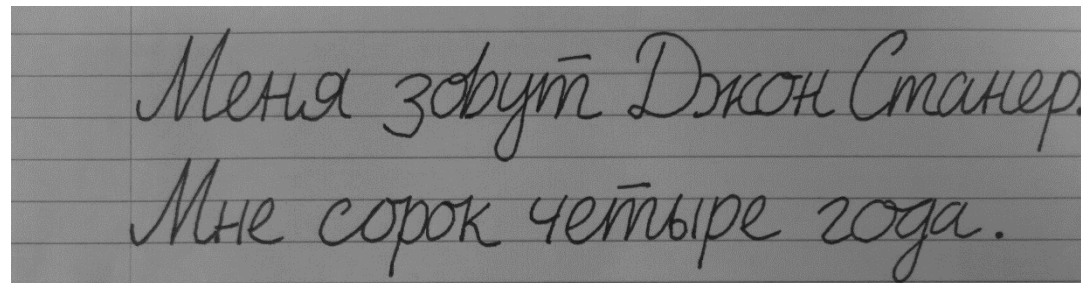 Меня зовут Джон Станер.
Мне сорок четыре года.